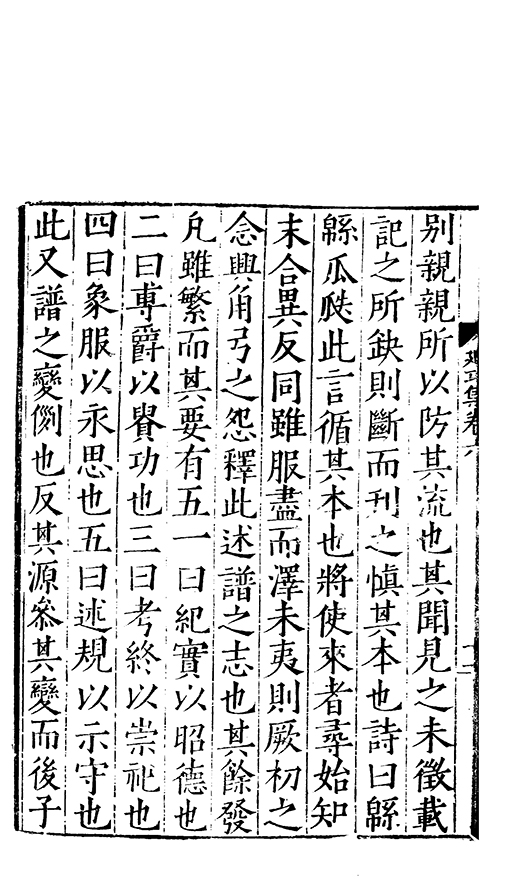 别親親所以防其流也其聞見之未徵載
記之所缺則斷而刋之愼其本也詩曰緜
緜瓜瓞此言循其本也將使來者尋始知
末合異反同雖服盡而澤未夷則厥初之
念興角弓之怨釋此述譜之志也其餘發
凡雖繁而其要有五一曰紀實以昭德也
二曰專爵以賞功也三曰考終以崇祀也
四曰象服以永思也五曰述規以示守也
此又譜之變例也反其源叅其變而後子
集卷六